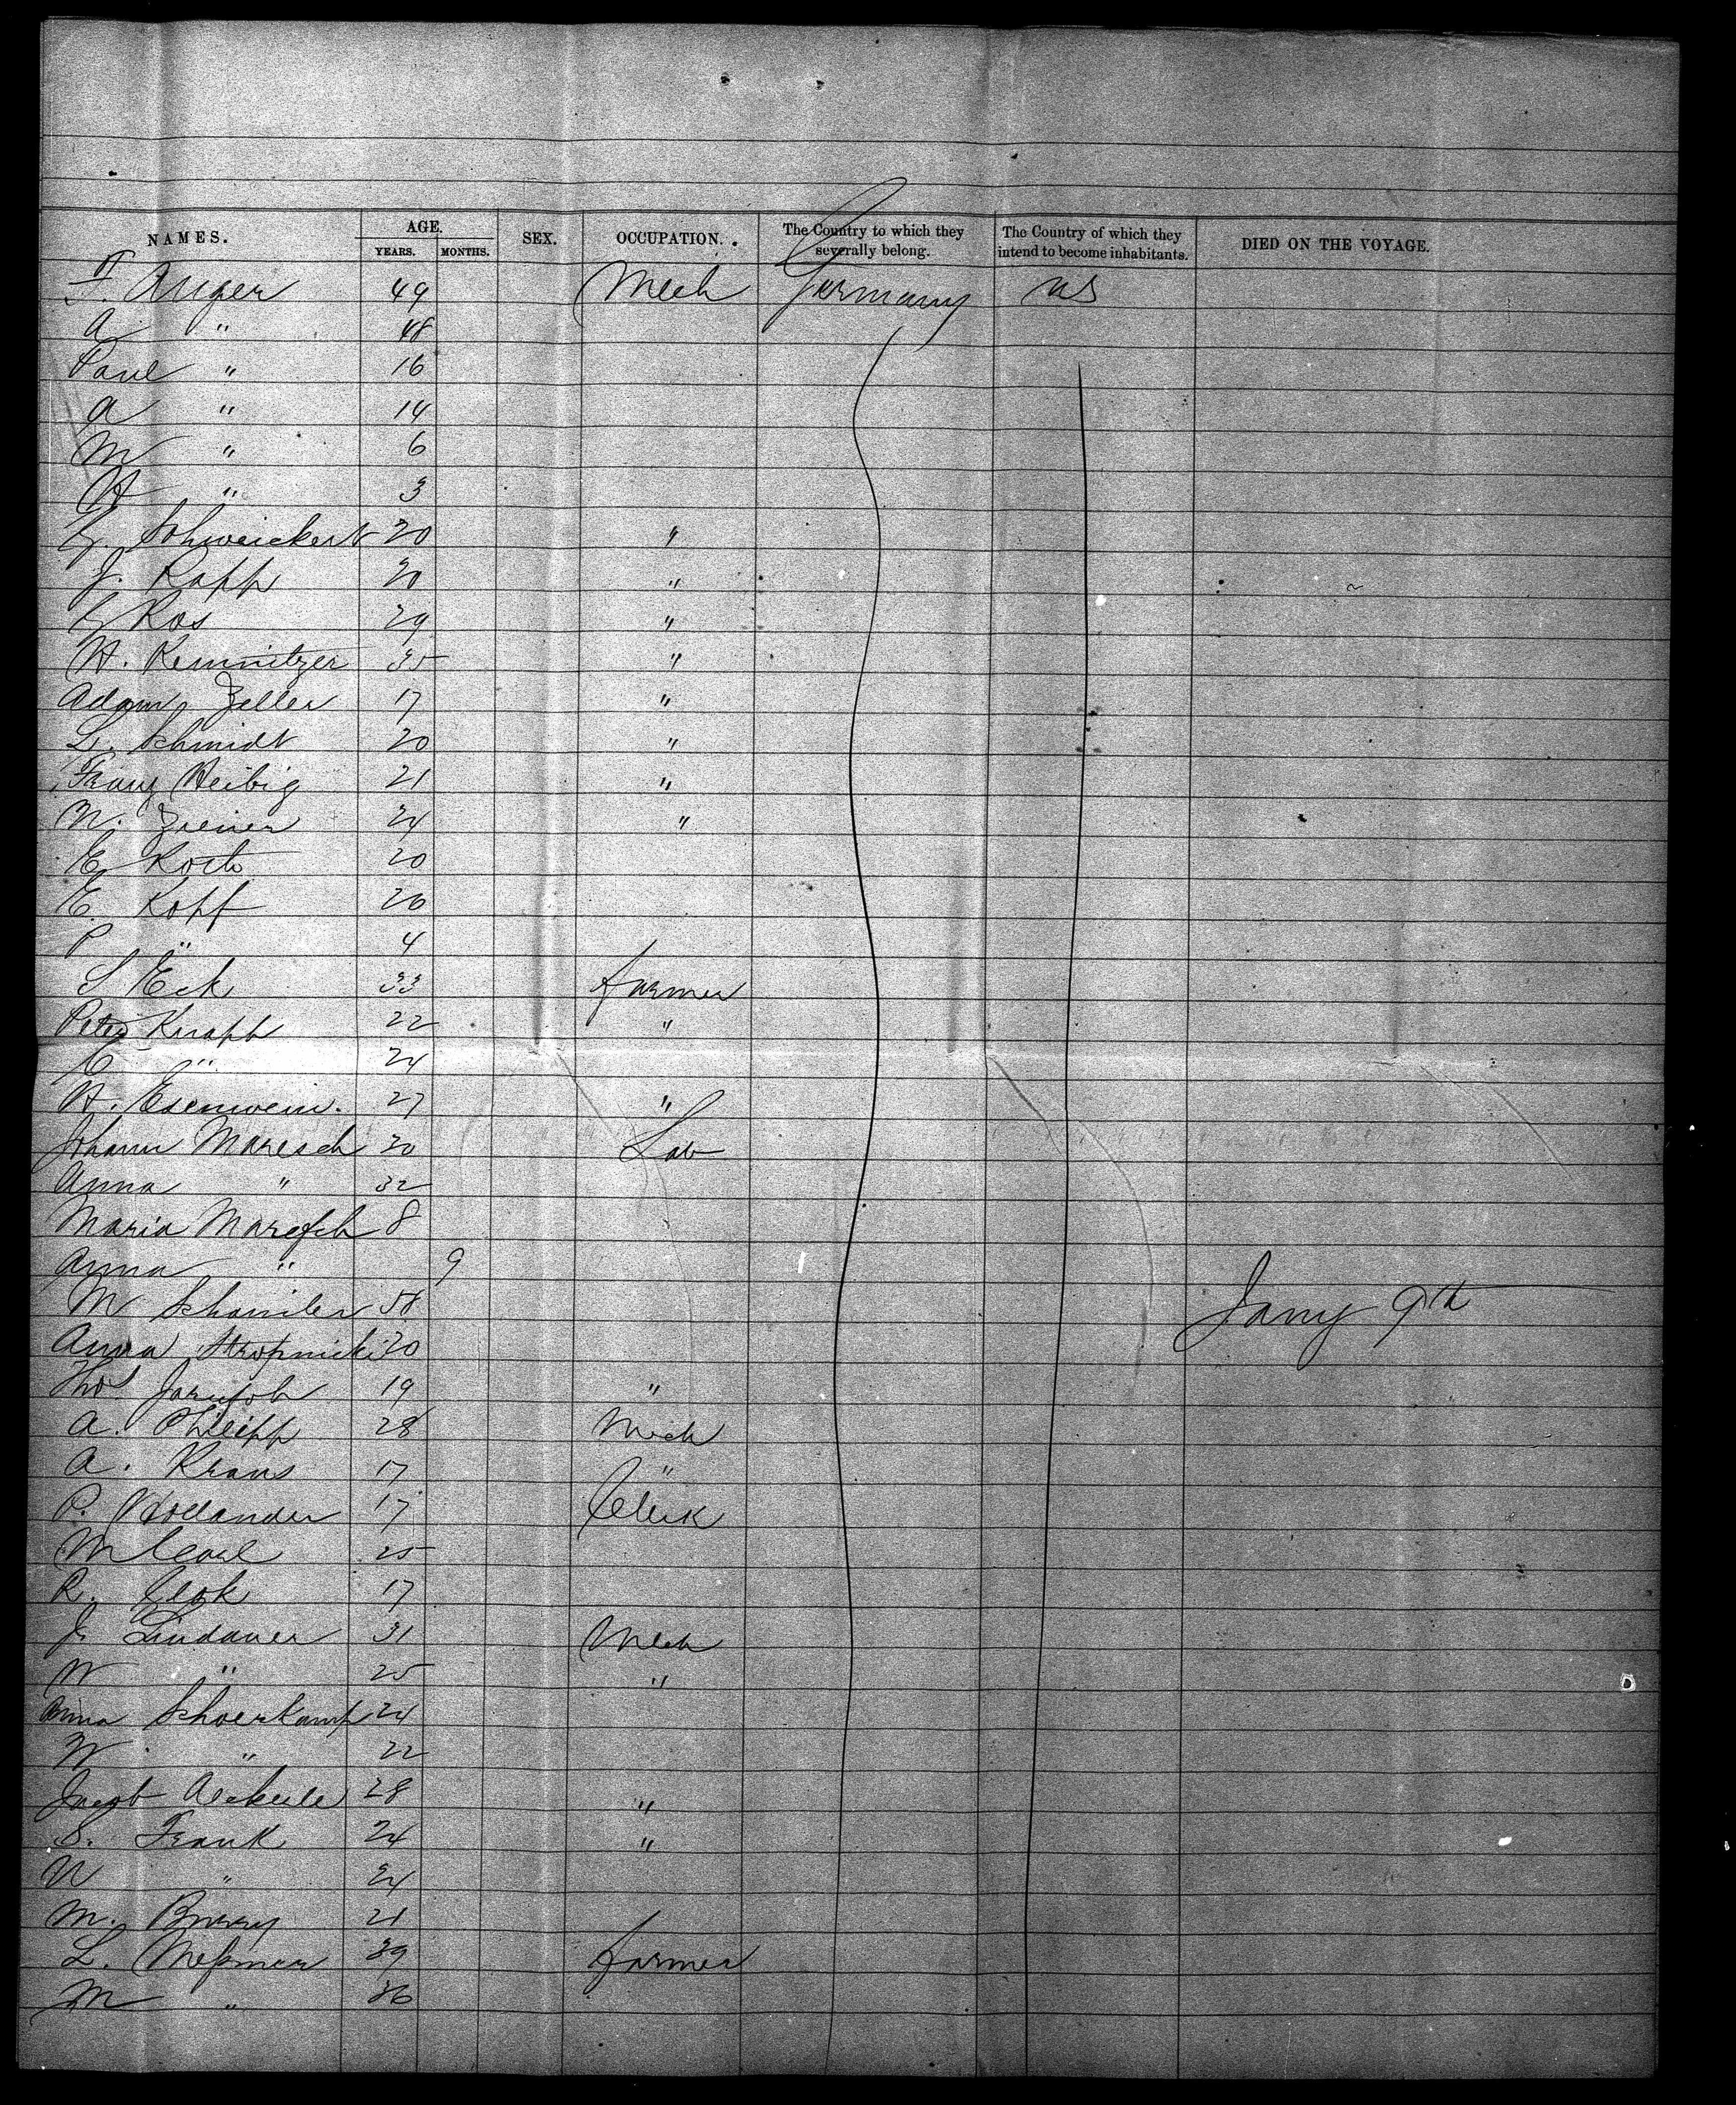 NAMES. AGE. SEX. OCCUPATION. The Country to which they severally belong. The Country of which they intend to become inhabitants. DIED ON THE VOYAGE.
YEARS. MONTHS.
F. Auger 49 Mech Germany US
A " 48
Paul " 16
A " 14
M " 6
H " 3
G. Schweickert 20 "
J. Rapp 20 "
G Ros 29 "
H. Kemnitzer 35 "
Adam Zeller 17 "
L. Schmidt 20 "
Franz Heibig 21 "
N. Ziener 24 "
E Koch 20
E. Kopf 26
P " 4
S Eck 33 farmer
Peter Knapp 22 "
C " 24
H. Esenwein. 27 "
Johann Maresch 30 Lab
Anna " 32
Maria Maresch 8
Anna " 9 Jany 9th
M 58
Anna Stropnicki 20
Thos 19 "
A. Philipp 28 Mech
A. Kraus 17 "
P. Hollander 17 Clerk
M Carl 25
R. 17
J. Lindauer 31 Mech
W " 25 "
Anna Schoerkamp 24
W " 22
Jacob 28 "
S. Frank 24 "
W " 24
M. Burry 21
L. Meßmer 39 farmer
M " 36